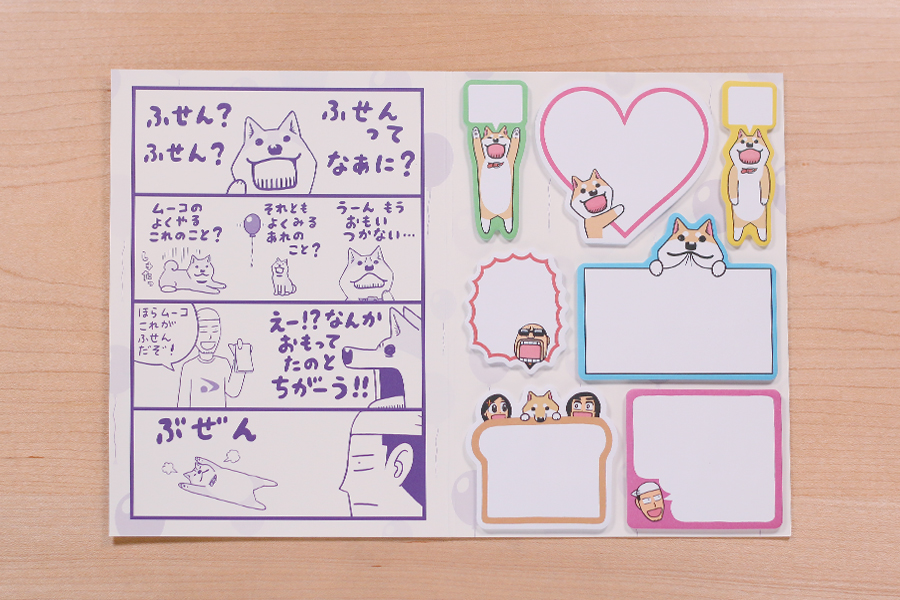 ふせん?
ふせん?
ふせん
って
なぁに?
ムーコの
よくやる
これのこと?
それとも
よくみる
あれの
こと?
うーん もう
おもい
つかない…
ほらムーコ
これが
ふせん
だぞ!
えー!?なんか
おもって
たのと
ちがーう!!
ぶぜん